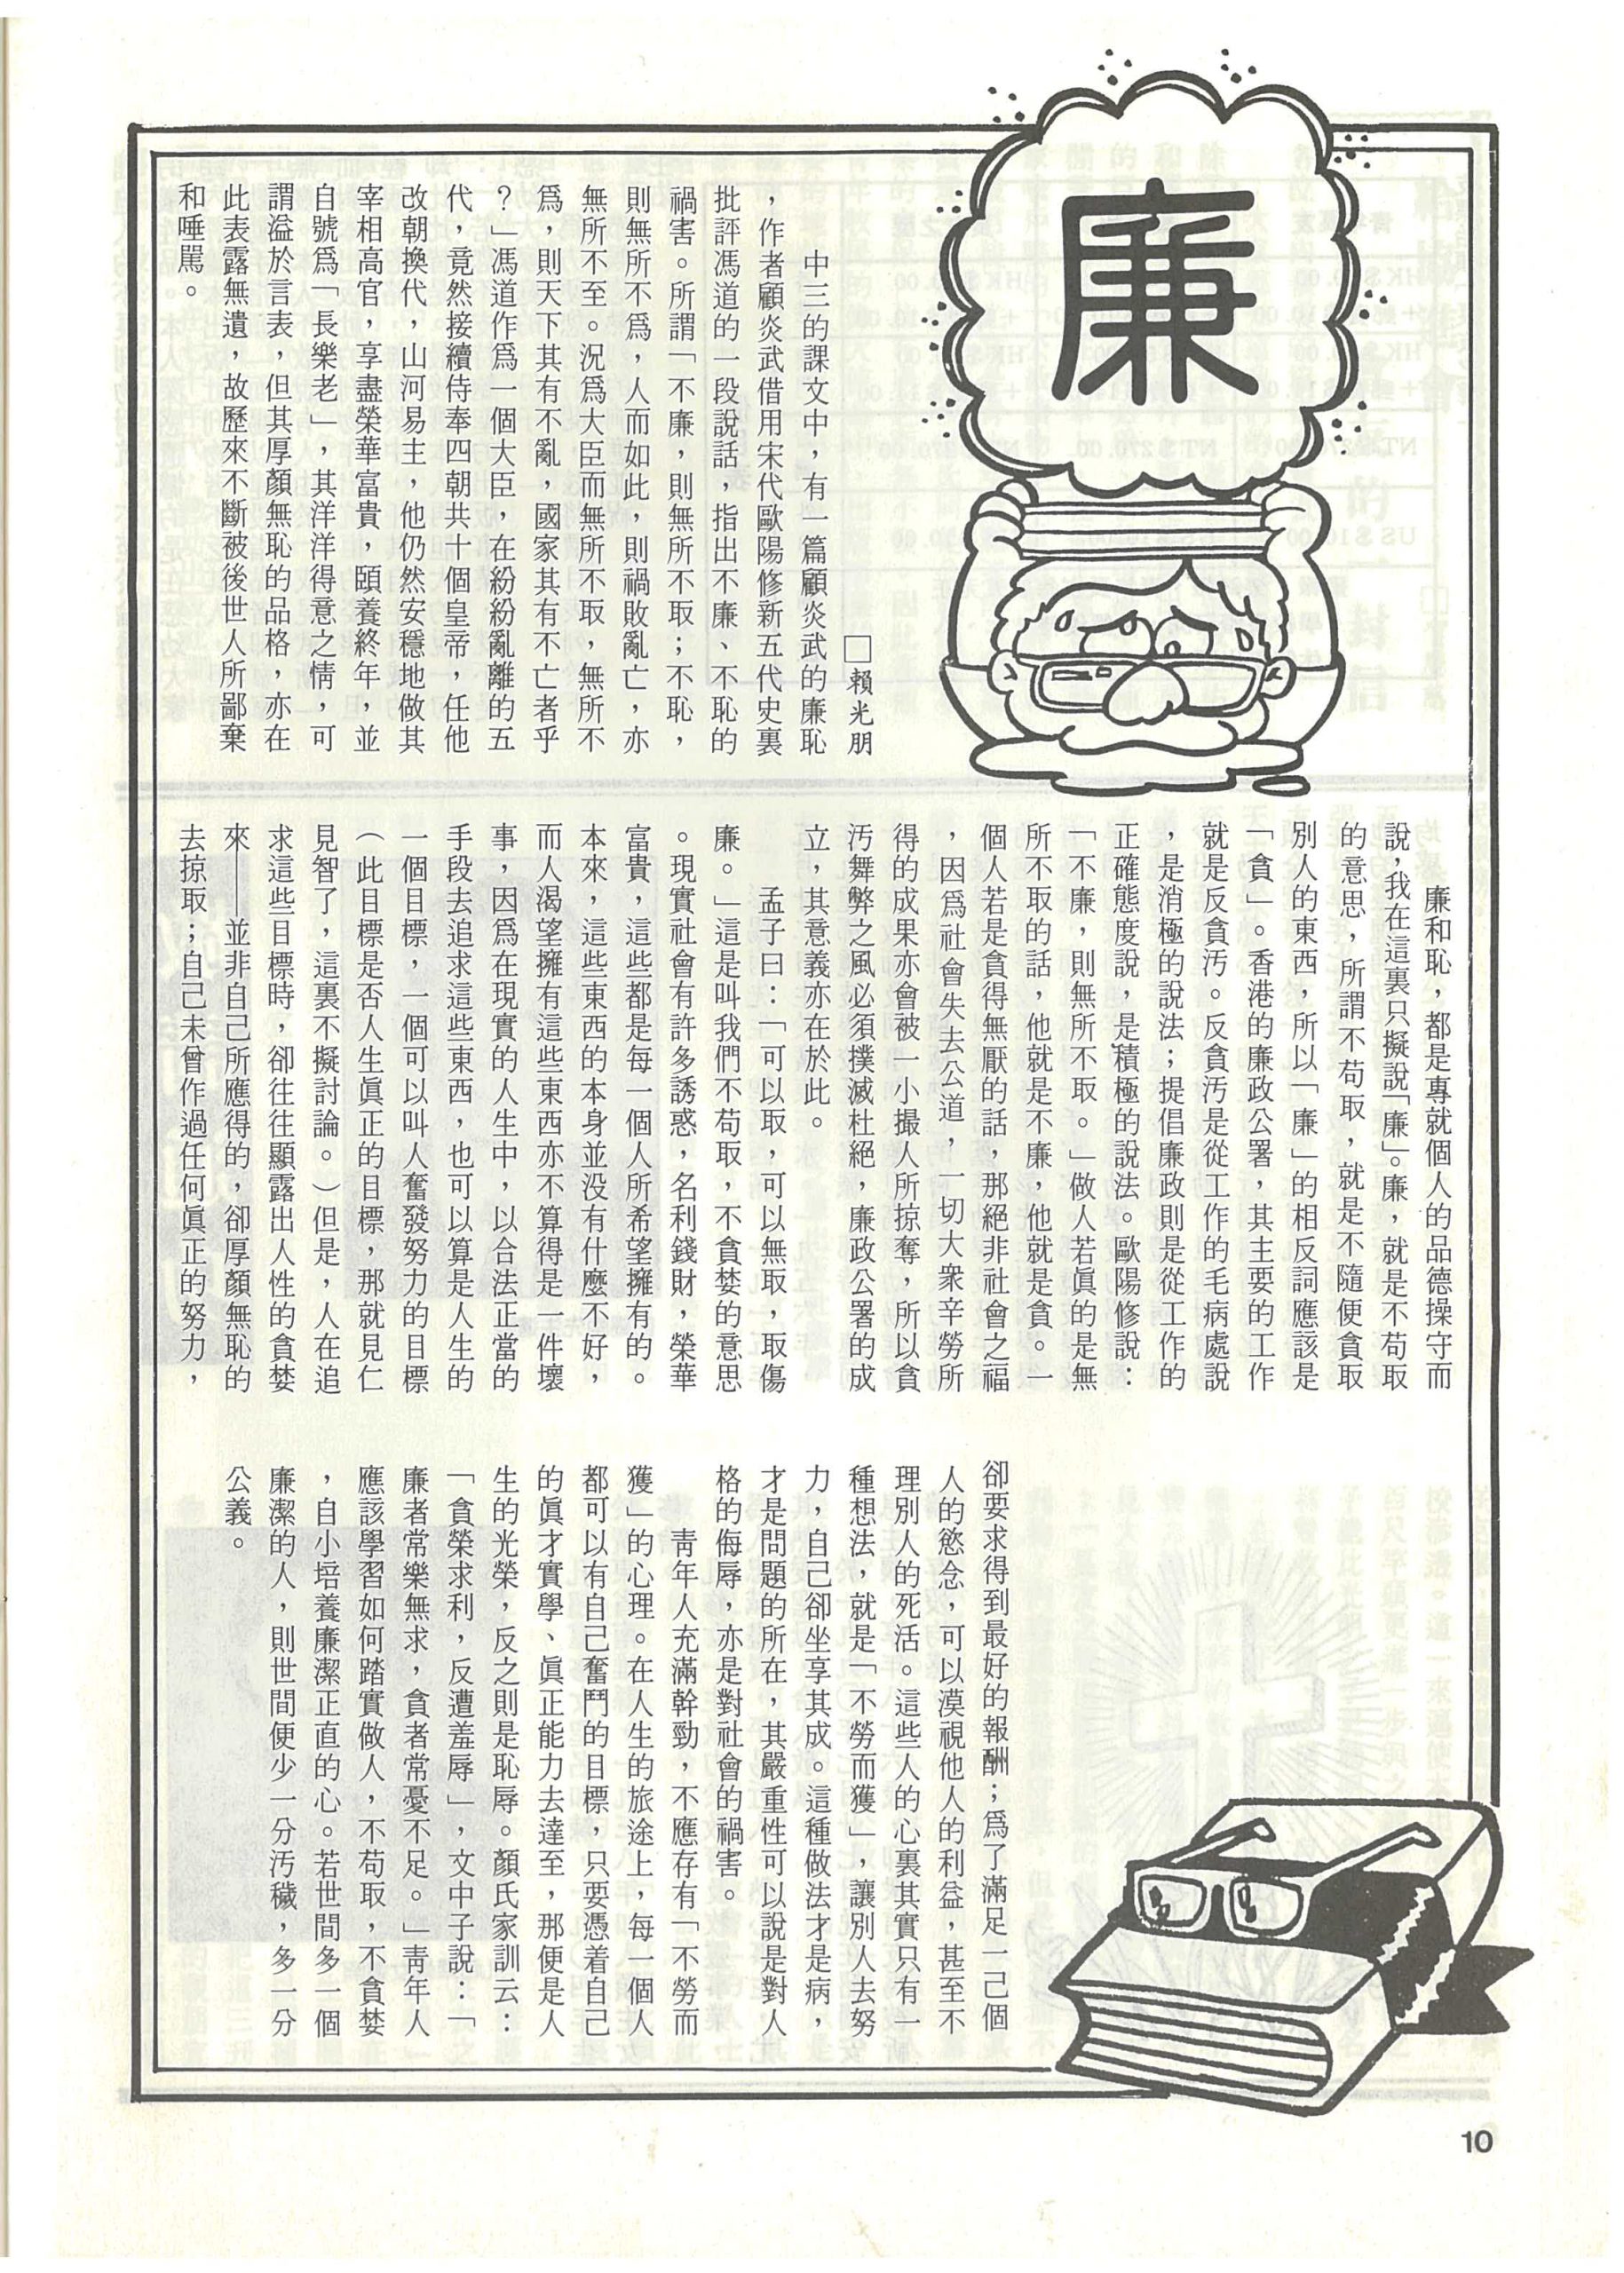 廉
□賴光朋
中三的課文中，有一篇顧炎武的廉恥
，作者顧炎武借用宋代歐陽修新五代史裏
批評馮道的一段說話，指出不廉、不恥的
禍害。所謂「不廉，則無所不取；不恥，
則無所不爲，人而如此，則禍敗亂亡，亦
無所不至。況爲大臣而無所不取，無所不
爲，則天下其有不亂，國家其有不亡者乎
？」馮道作爲一個大臣，在紛紛亂離的五
代，竟然接續侍奉四朝共十個皇帝，任他
改朝換代，山河易主，他仍然安穩地做其
宰相高官，享盡榮華富貴，頤養終年，並
自號爲「長樂老」，其洋洋得意之情，可
謂溢於言表，但其厚顏無恥的品格，亦在
此表露無遺，故歷來不斷被後世人所鄙棄
和唾罵。
廉和恥，都是專就個人的品德操守而
說，我在這裏只擬說「廉」。廉，就是不苟取
的意思，所謂不苟取，就是不隨便貪取
別人的東西，所以「廉」的相反詞應該是
「貪」。香港的廉政公署，其主要的工作
就是反貪污。反貪污是從工作的毛病處說
，是消極的說法；提倡廉政則是從工作的
正確態度說，是積極的說法。歐陽修說：
「不廉，則無所不取。」做人若眞的是無
所不取的話，他就是不廉，他就是貪。一
個人若是貪得無厭的話，那絕非社會之福
，因爲社會失去公道，一切大衆辛勞所
得的成果亦會被一小撮人所掠奪，所以貪
污舞弊之風必須撲滅杜絕，廉政公署的成
立，其意義亦在於此。
孟子曰：「可以取，可以無取，取傷
廉。」這是叫我們不苟取，不貪婪的意思
。現實社會有許多誘惑，名利錢財，榮華
富貴，這些都是每一個人所希望擁有的。
本來，這些東西的本身並没有什麼不好，
而人渴望擁有這些東西亦不算得是一件壞
事，因爲在現實的人生中，以合法正當的
手段去追求這些東西，也可以算是人生的
一個目標，一個可以叫人奮發努力的目標
（此目標是否人生眞正的目標，那就見仁
見智了，這裏不擬討論。）但是，人在追
求這些目標時，卻往往顯露出人性的貪婪
來——並非自己所應得的，卻厚顏無恥的
去掠取；自己未曾作過任何眞正的努力，
卻要求得到最好的報酬；爲了滿足一己個
人的慾念，可以漠視他人的利益，甚至不
理別人的死活。這些人的心裏其實只有一
種想法，就是「不勞而獲」，讓別人去努
力，自己卻坐享其成。這種做法才是病，
才是問題的所在，其嚴重性可以說是對人
格的侮辱，亦是對社會的禍害。
靑年人充滿幹勁，不應存有「不勞而
獲」的心理。在人生的旅途上，每一個人
都可以有自己奮鬥的目標，只要憑着自己
的眞才實學、眞正能力去達至，那便是人
生的光榮，反之則是恥辱。顏氏家訓云：
「貪榮求利，反遭羞辱」，文中子說：「
廉者常樂無求，貪者常憂不足。」靑年人
應該學習如何踏實做人，不苟取，不貪婪
，自小培養廉潔正直的心。若世間多一個
廉潔的人，則世間便少一分汚穢，多一分
公義。
10